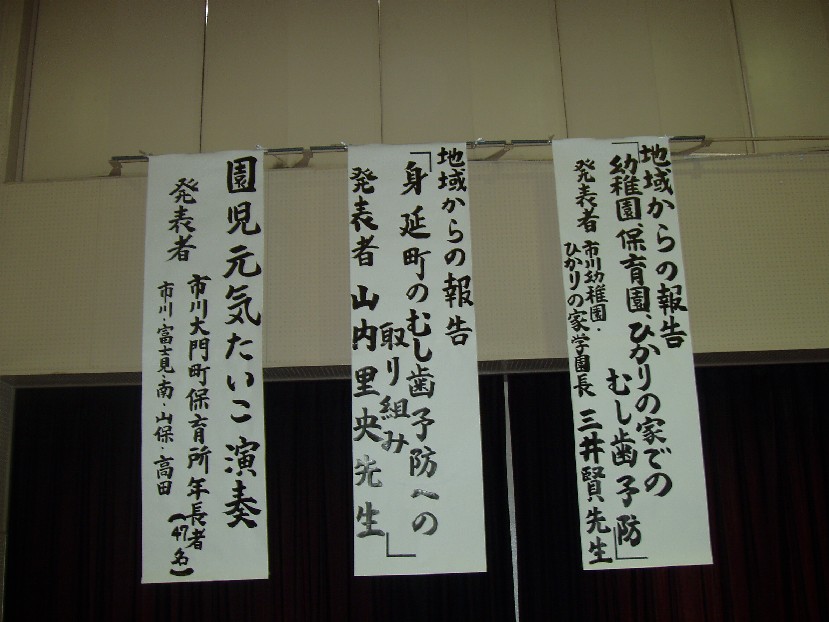 地域からの報告
「幼稚園保育園、ひかりの家での
むし歯予防」
発表者 市川幼稚園・
ひかりの家学園長 三井賢先生
地域からの報告
「身延町のむし歯予防への
取り組み」
発表者 山内里央先生
園児元気たいこ演奏
発表者 市川大門町保育所年長者
市川・富士見・南・山保・高田
(47名)